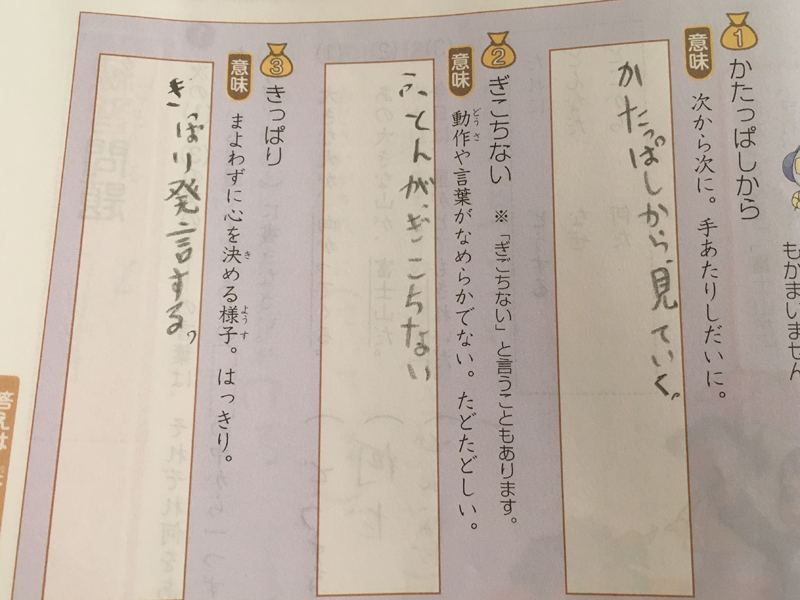 もかまいません
1 かたっぱしから
意味 次から次に。手あたりしだいに。
かたっぱしから、見ていく。
2 ぎこちない ※「ぎごちない」と言うこともあります。
意味 動作や言葉がなめらかでない。たどたどしい。
ふとんが、ぎこちない
3 きっぱり
意味 まよわずに心を決める様子。はっきり。
きっぱり発言する。
答えは